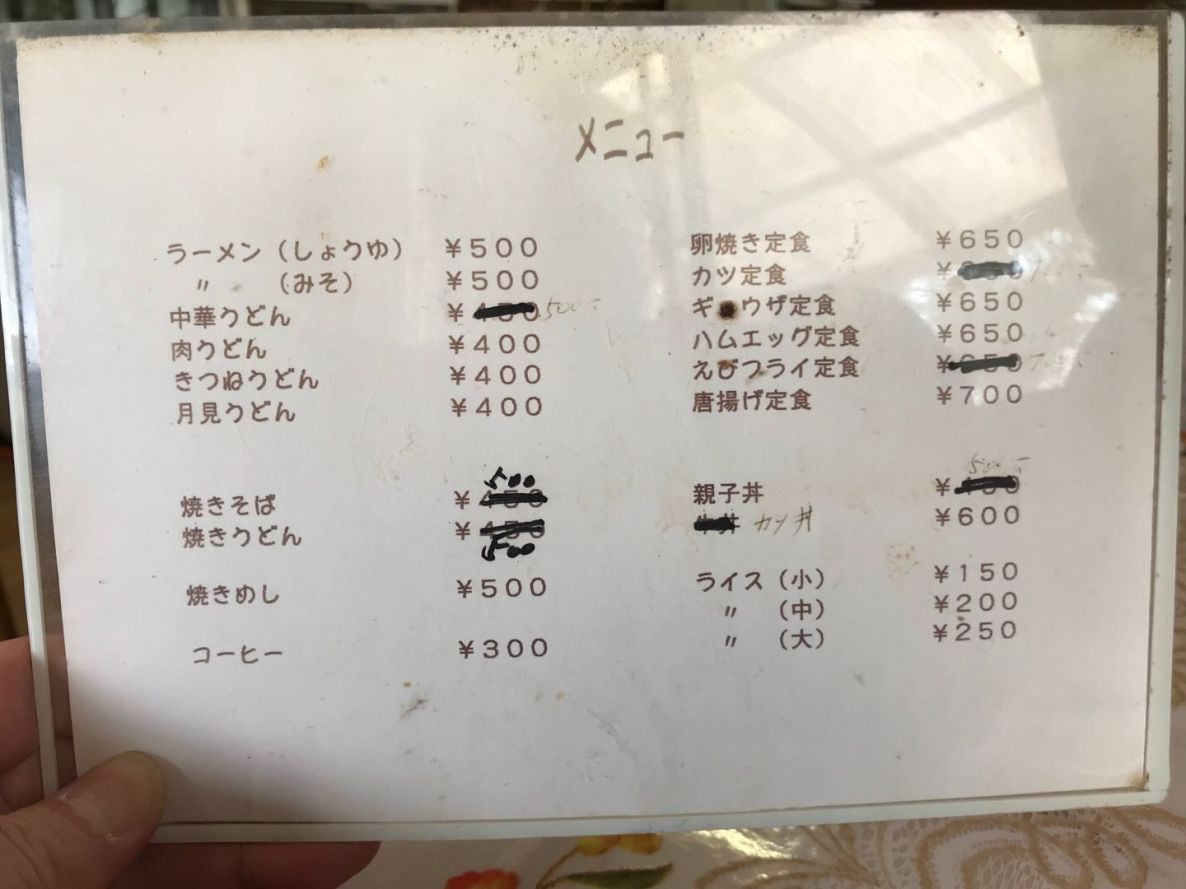 メニュー
ラーメン（しょうゆ） ￥500
〃 （みそ） ￥500
中華うどん ￥450 500-
肉うどん ￥400
きつねうどん ￥400
月見うどん ￥400
500
焼きそば ￥450
焼きうどん ￥450
500
焼きめし ￥500
コーヒー ￥300
卵焼き定食 ￥650
カツ定食 ￥
ギョウザ定食 ￥650
ハムエッグ定食 ￥650
えびフライ定食 ￥650
唐揚げ定食 ￥700
500-
親子丼 ￥
丼 カツ丼 ￥600
ライス（小） ￥150
〃 （中） ￥200
〃 （大） ￥250